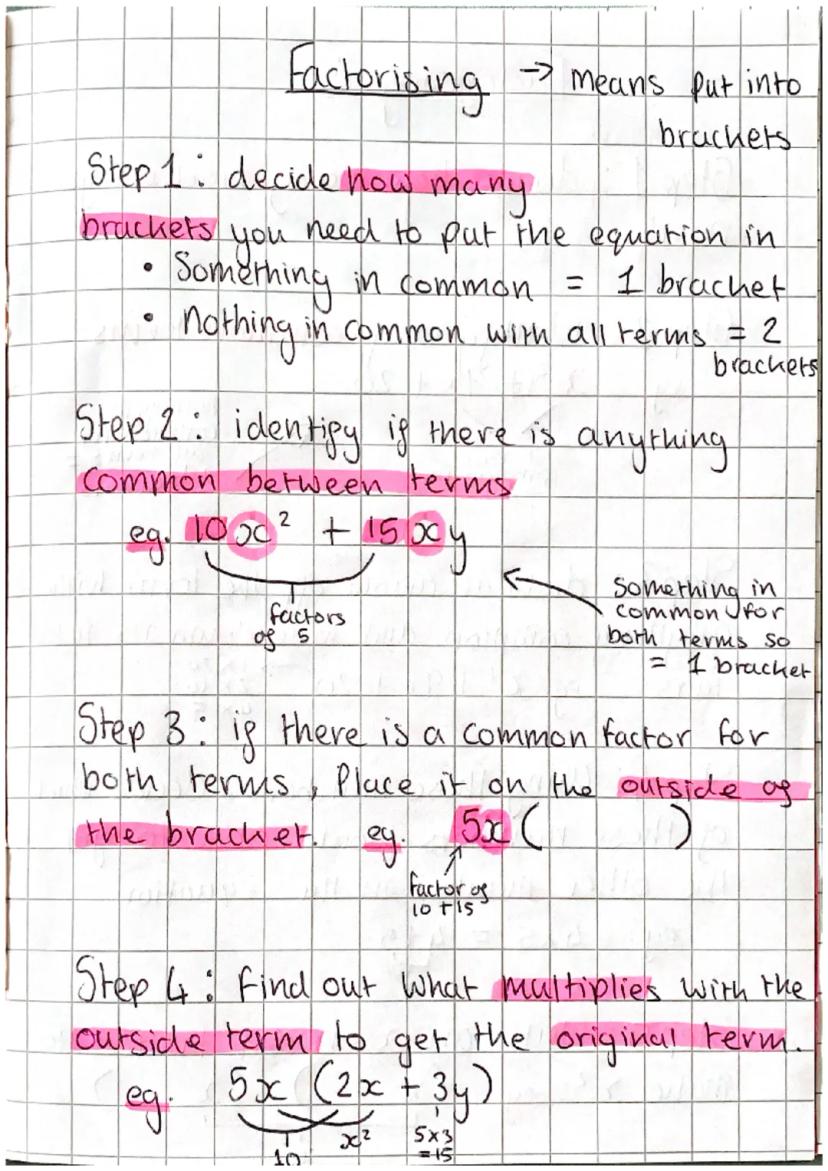 Factorising → means put into
brackets
Step 1: decide how many
brackets you need to put the equation in
• Something in common = 1 bracket
• Nothing in common with all terms = 2
brackets
Step 2: identify if there is anything
common between terms
eg. 10x² + 15xy
factors
of 5
something in
common for
both terms so
= 1 bracket
Step 3: if there is a common factor for
both terms, Place it on the outside of
the bracket. eg. 5x( )
factor of
10 + 15
Step 4: Find out what multiplies with the
outside term to get the original term.
eg. 5x (2x + 3y)
10 x² 5x3
=15